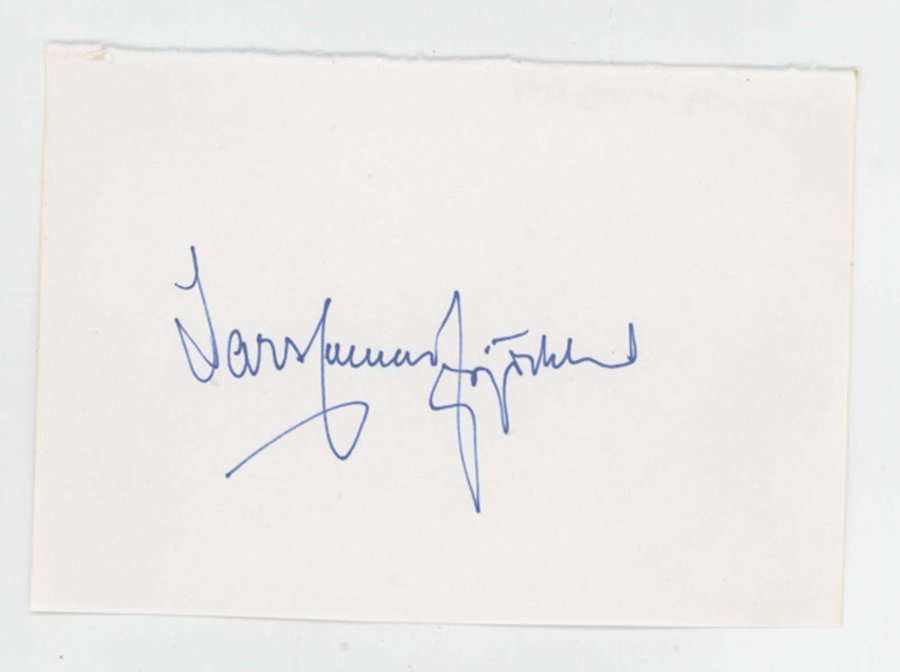 Lars Gunnar Björklund